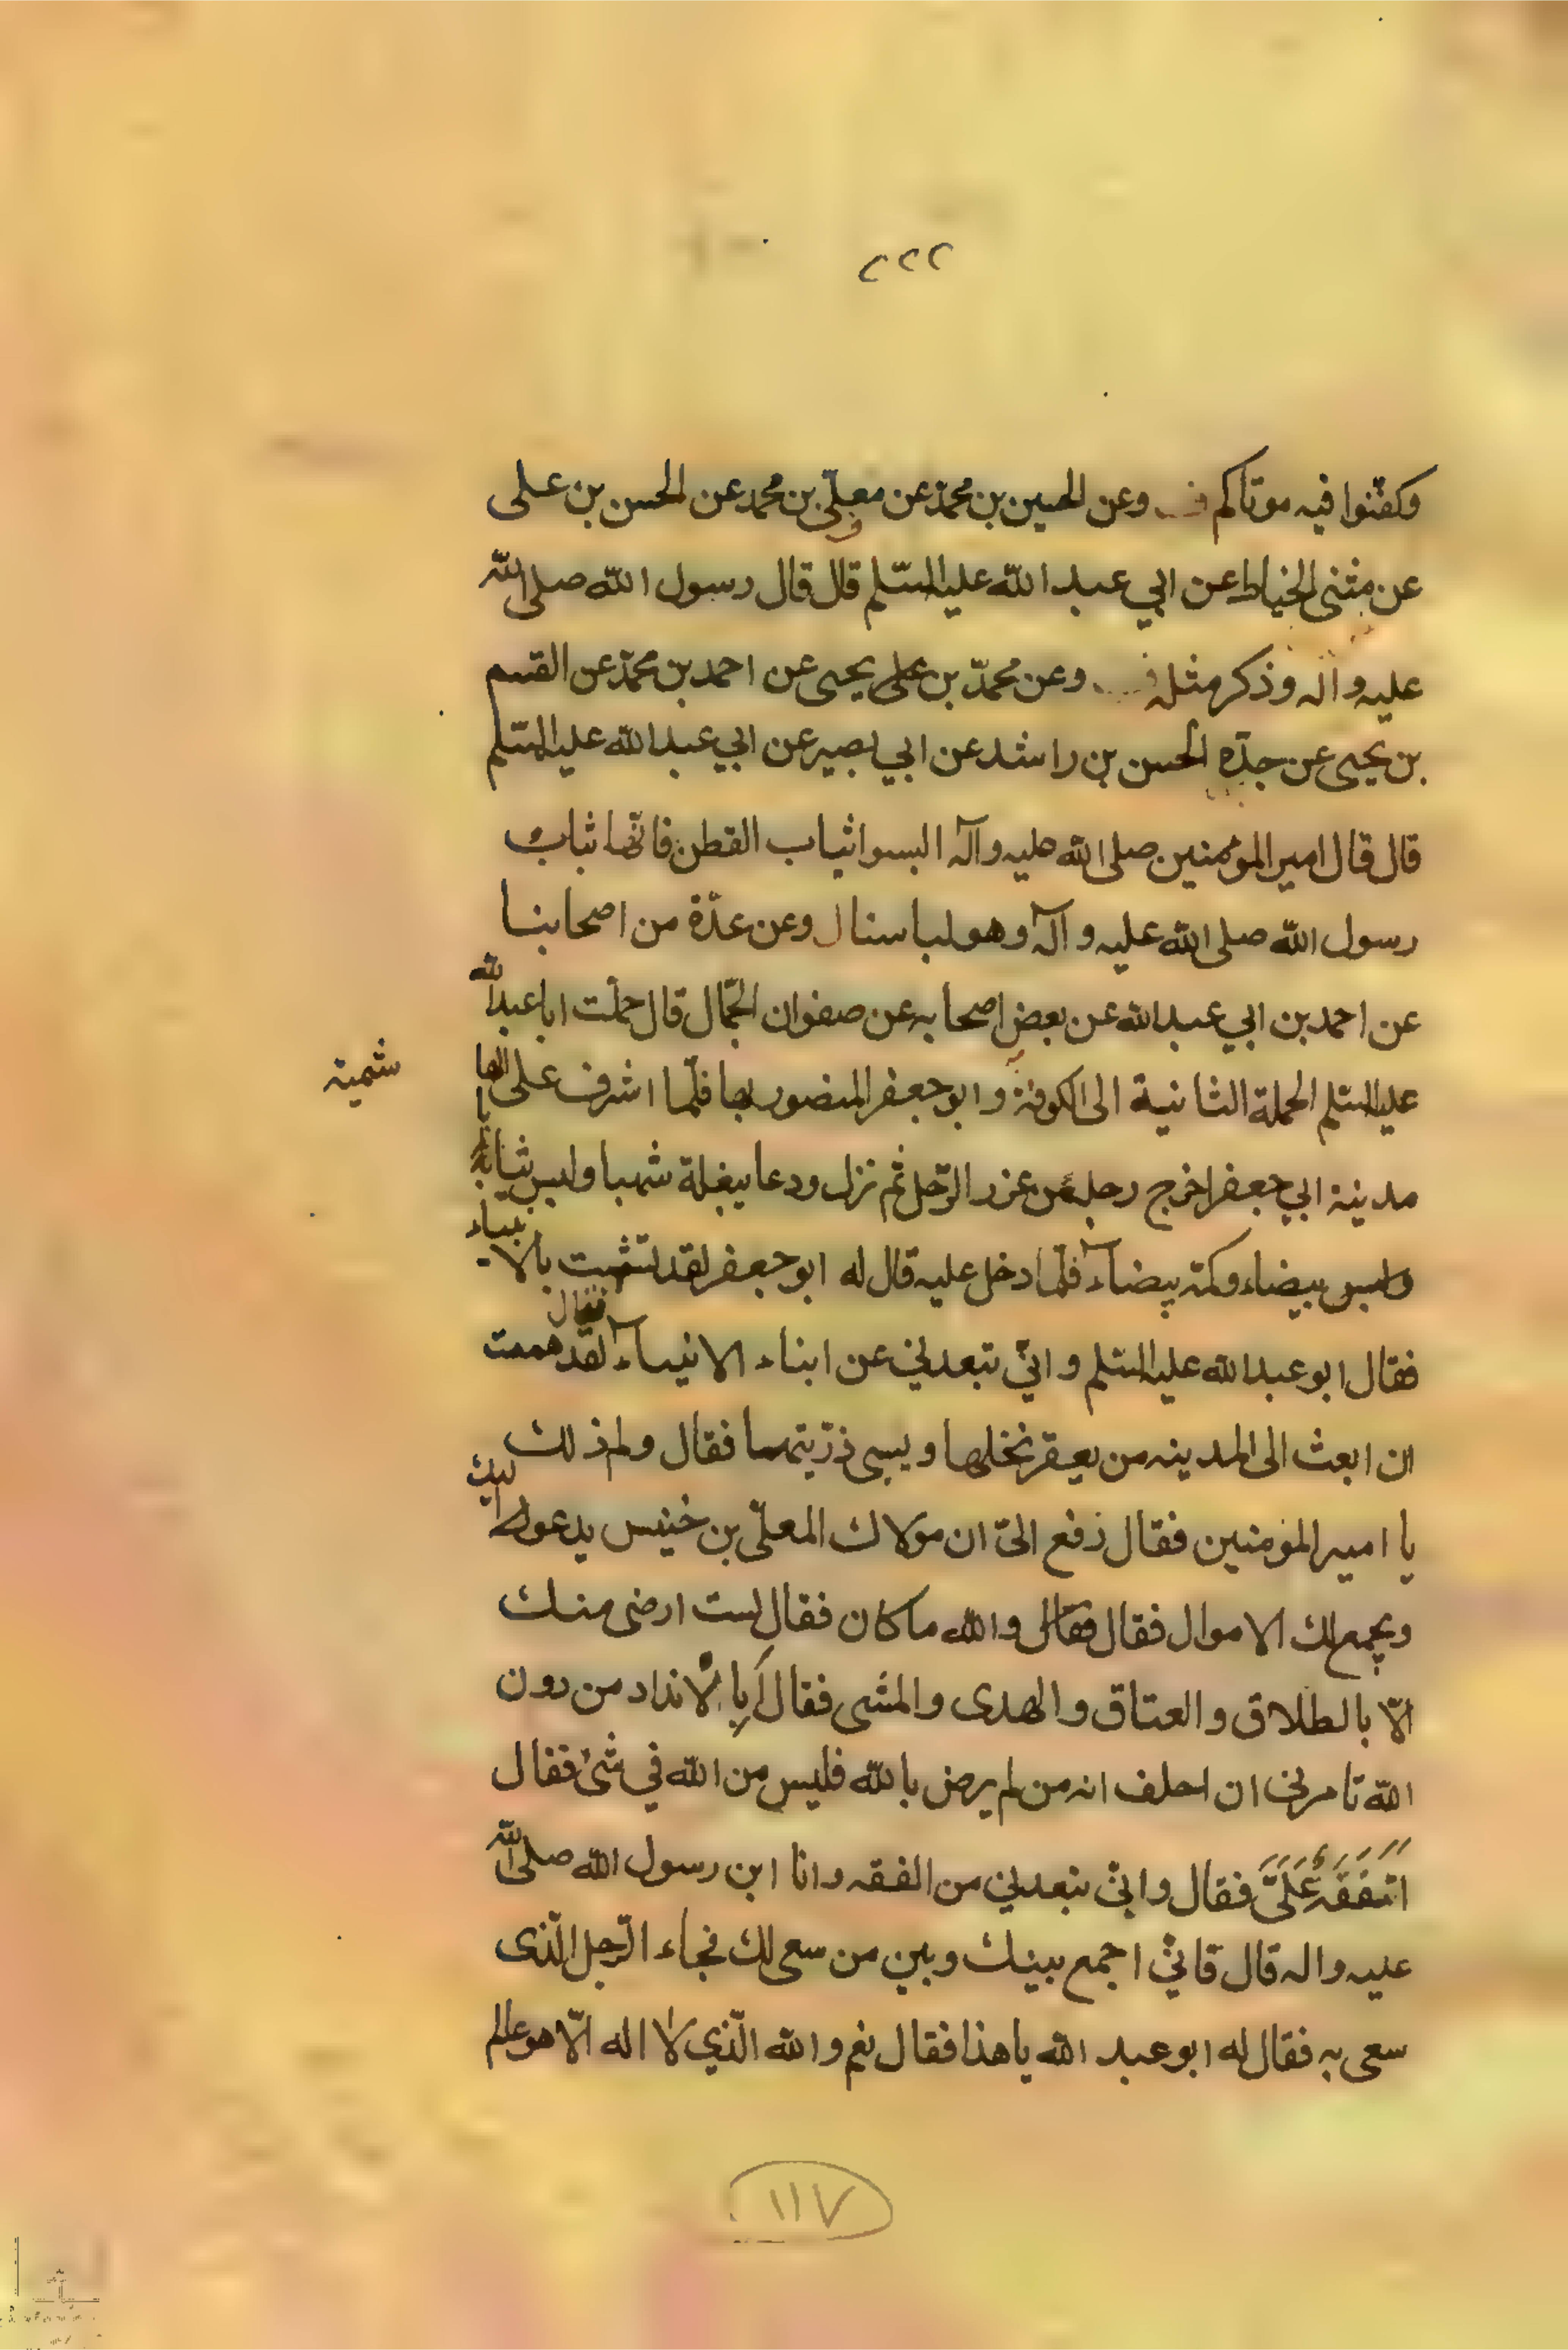 ٢٢٢
وكفّنوا فيه موتاكم وعن الحسين بن محمّد عن معلّى بن محمد عن الحسن بن على
عن مثنى الخياط عن ابي عبد الله عليه السّلم قال قال رسول الله صلى الله
عليه وآله وذكر مثله وعن محمّد بن على يحيى عن احمد بن محمّد عن القسم
بن يحيى عن جدّه الحسن بن راشد عن ابي بصير عن ابي عبد الله عليه السّلم
قال قال امير المؤمنين صلى الله عليه وآله البسوا ثياب القطن فانّها ثياب
رسول الله صلى الله عليه وآله وهو لباسنا ل وعن عدّة من اصحابنا
عن احمد بن ابي عبد الله عن بعض اصحابه عن صفوان الجمّال قال حملت ابا عبد الله
عليه السّلم الحملة الثانية الى الكوفة وابو جعفر المنصور بها فلّما اشرف على الها
شمية
مدينة ابي جعفر اخرج رجله من غرز الرّحل ثم نزل ودعا ببغلة شهبا ولبس ثيابا
بيضاء وكمّه بيضاء فلّما دخل عليه قال له ابو جعفر لقد تشبّهت بالانبياء
فقال ابو عبد الله عليه السّلم وانّي تبعدني عن ابناء الانبياء فقال لقد هممت
ان ابعث الى المدينه من يعقر نخلها ويسبى ذرّيتها فقال ولم ذلك
يا امير المؤمنين فقال رفع الىّ ان مولاك المعلّى بن خنيس يدعو اليك
ويجمع لك الاموال فقال والله ما كان فقال لست ارضى منك
الّا بالطلاق والعتاق والهدى والمشى فقال أبِالانداد من دون
الله تامرني ان احلف انه من لم يرض بالله فليس من الله في شئ فقال
اتتفقّه علىّ فقال وانّى تبعدني من الفقه وانا ابن رسول الله صلى الله
عليه واله قال فانّي اجمع بينك وبين من سعى لك فجاء الرّجل الّذى
سعى به فقال له ابو عبد الله يا هذا فقال نعم والله الّذي لا اله الّا هو عالم
١١٧